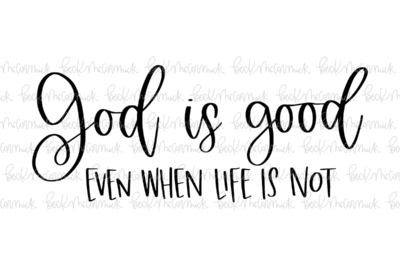 God is good
EVEN WHEN LIFE IS NOT